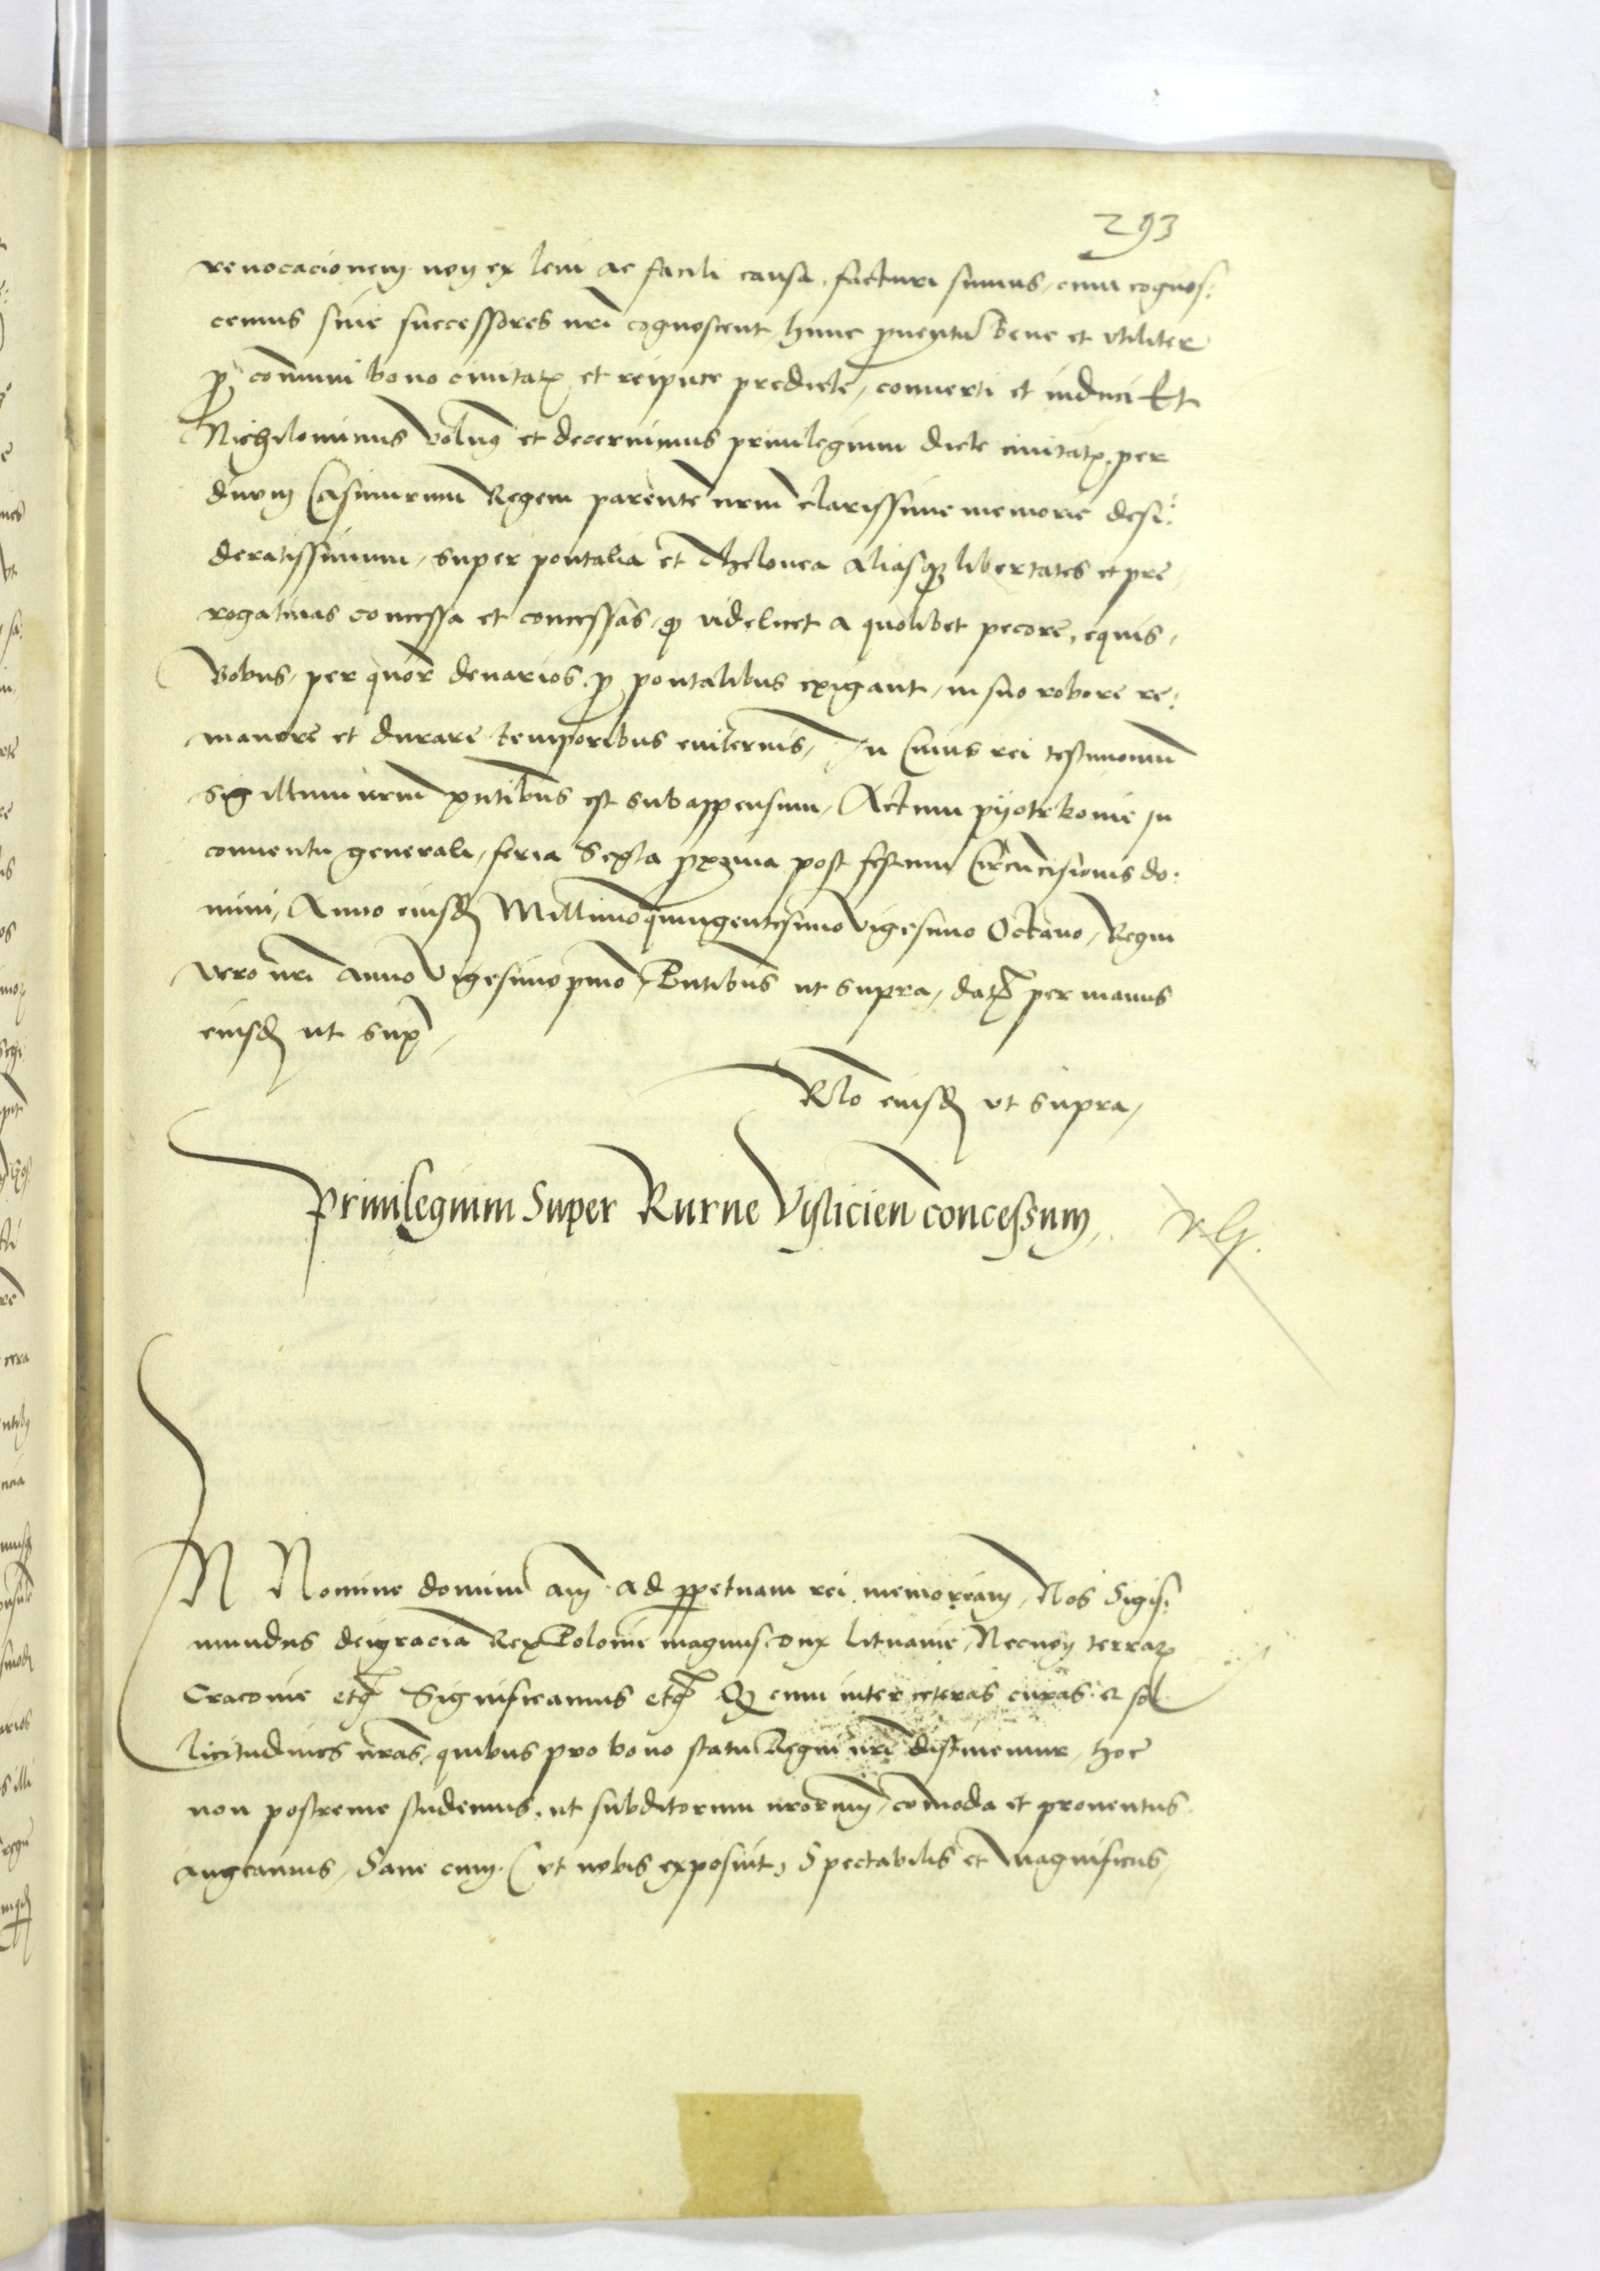 293
revocacionem non ex levi ac facili causa, facturi sumus, cum cognos:
cemus sive successores nri cognoscent hunc proventu bene et utiliter
p communi bono civitatis et reipuce predicte, converti et induci Et
Nichilominus volumus et decernimus privilegium dicte civitatis per
dnom Casimirum Regem parente nrm clarissime memorie desi:
deratissimum, super pontalia et thelonea aliasque libertates et pre
rogativas concessa et concessas, quod videlicet a quolibet pecore, equis,
Bobus, per quor denarios, p pontalibus exigant, in suo robore re:
manere et durare temporibus eviternis, In Cuius rei testimonium
Sigillum nrm pntibus est subappensum, Actum pyotrkovie in
conventu generali, feria Sexta pxima post festum Circumcisionis do:
mini, Anno eiusdem Millimoquingentesimo vigesimo Octavo, Regni
vero nri Anno vigesimo pmo, Pntibus ut supra, dat per manus
eiusdem ut sup
Rlo eiusdem ut supra,
Privilegium Super Rurne Visliciens concessum,
IN Nomine domini am ad ppetuam rei memoriam, Nos Sigis:
mundus dei gracia Rex Polonie magnus dux lituanie, Necnon terrar
Cracovie etc Significamus etc Quod cum inter ceteras curas et sol
licitudines nras, quibus pro bono statu Regni nri distinemur, hoc
non postreme studemus, ut subditorum nrorum, comoda et proventus
augeamus, Sane cum (ut nobis exposuit) Spectabilis et Magnificus,